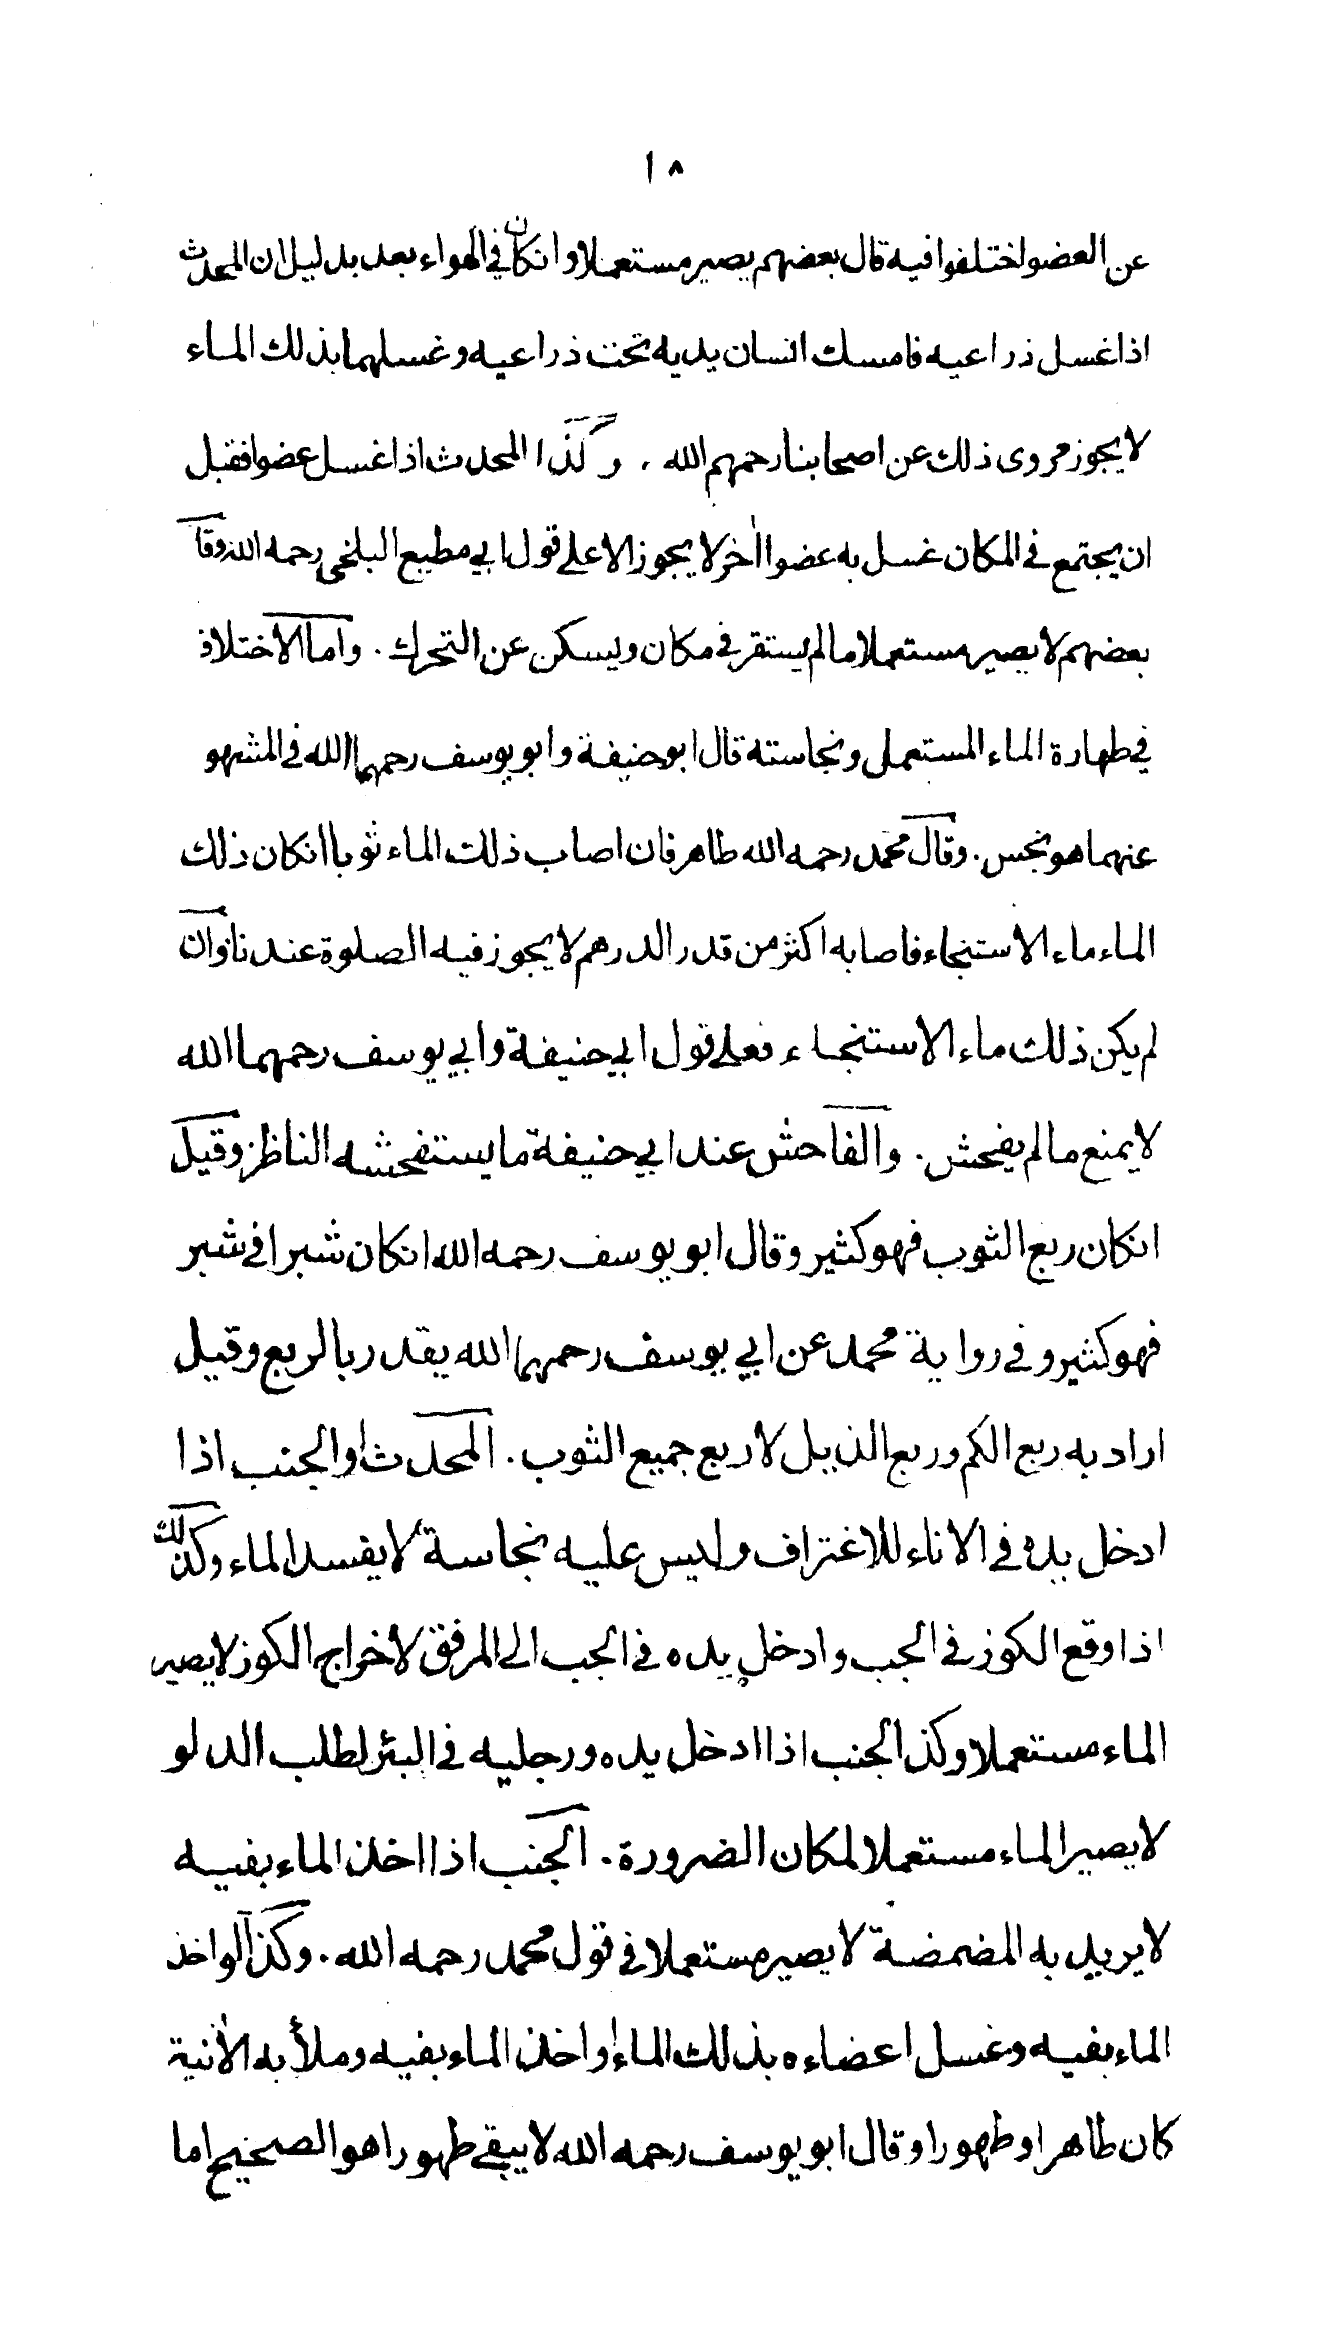 ١٨
عن العضو اختلفوا فيه قال بعضهم يصير مستعملا وانكان في الهواء بعد بدليل ان المحدث
اذا غسل ذراعيه فامسك انسان يديه تحت ذراعيه وغسلهما بذلك الماء
لا يجوز مروى ذلك عن اصحابنا رحمهم الله . وكذا المحدث اذا غسل عضوا فقبل
ان يجتمع في المكان غسل به عضوا اٰخر لا يجوز الا على قول ابي مطيع البلخي رحمه الله وقا
بعضهم لا يصير مستعملا ما لم يستقر في مكان ويسكن عن التحرك . واما الاختلاف
في طهارة الماء المستعمل ونجاسته قال ابو حنيفة وابو يوسف رحمهما الله في المشهو
عنهما هو نجس . وقال محمد رحمه الله طاهر فان اصاب ذلك الماء ثوبا انكان ذلك
الماء ماء الاستنجاء فاصابه اكثر من قدر الدرهم لا يجوز فيه الصلوة عندنا وان
لم يكن ذلك ماء الاستنجاء فعلى قول ابي حنيفة وابي يوسف رحمهما الله
لا يمنع ما لم يفحش . والفاحش عند ابي حنيفة ما يستفحشه الناظر وقيل
انكان ربع الثوب فهو كثير وقال ابو يوسف رحمه الله انكان شبرا في شبر
فهو كثير و في رواية محمد عن ابي يوسف رحمهما الله يقدر بالربع وقيل
اراد به ربع الكم وربع الذيل لا ربع جميع الثوب . المحدث او الجنب اذا
ادخل يده في الاناء للاغتراف وليس عليه نجاسة لا يفسد الماء وكذلك
اذا وقع الكوز في الجب وادخل يده في الجب الى المرفق لاخراج الكوز لا يصير
الماء مستعملا وكذا الجنب اذا ادخل يده ورجليه في البئر لطلب الدلو
لا يصير الماء مستعملا لمكان الضرورة . الجنب اذا اخذ الماء بفيه
لا يريد به المضمضة لا يصير مستعملا في قول محمد رحمه الله . وكذا لو اخذ
الماء بفيه وغسل اعضاءه بذلك الماء او اخذ الماء بفيه وملأ به الاٰنية
كان طاهرا وطهورا وقال ابو يوسف رحمه الله لا يبقى طهورا هو الصحيح اما